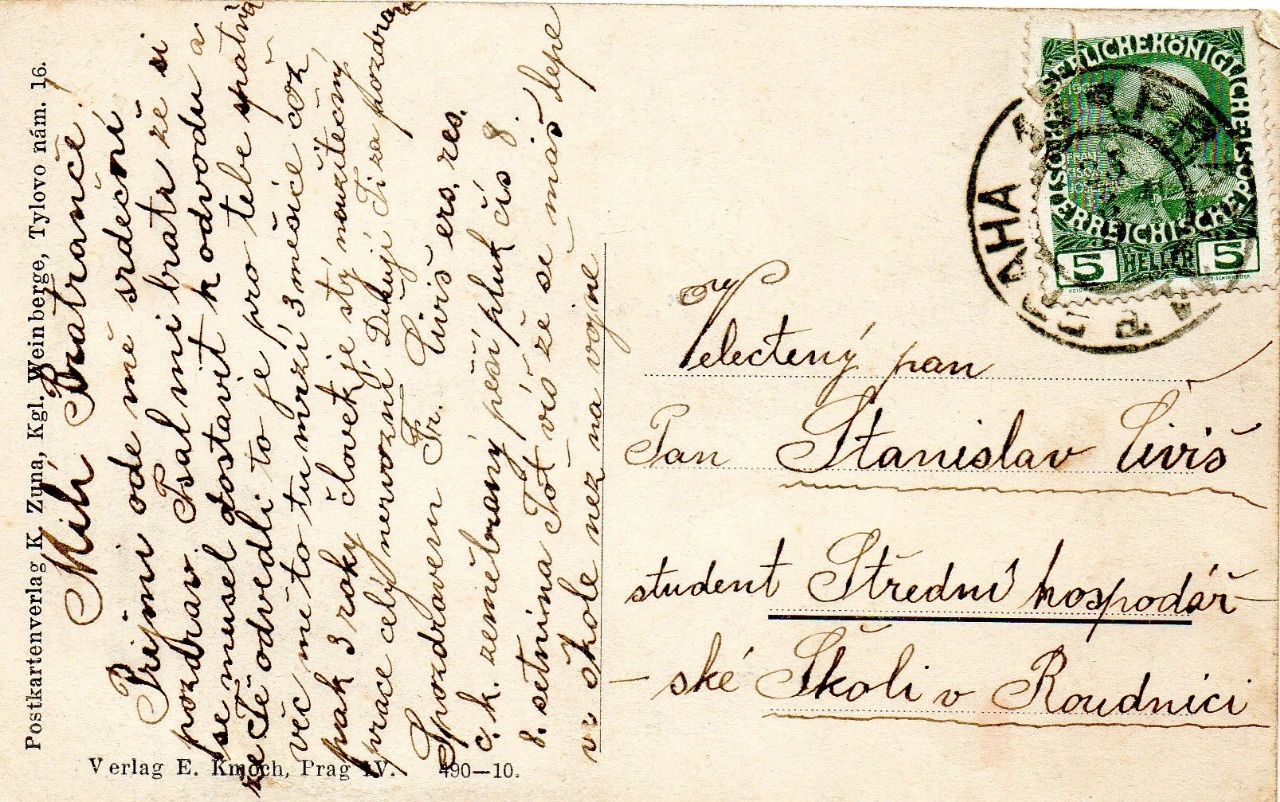 Postkartenverlag K. Zuna, Kgl. Weinberge, Tylovo nám. 16.
Milí Bratranče!
Prijmi ode mě srdecní
pozdrav. Psal mi bratr že si
se musel dostavit k odvodu a
že Tě odvedli to je pro tebe špatná
věc mě to tu mrzí 3 měsíce coz
pak 3 roky človek je stý neuzitečný
práce celý nervozní. Dekuji Ti za pozdrav
Spozdravem Fr. Civiš ers. res.
c. k. zemiebraný peší pluk čís 8.
8. setnina Tot víš že se máš lepe
v škole nez na vojně
Verlag E. Knjoch, Prag IV. 490—10.
KAISERLICHEKÖNIGLICHE
ÖSTERREICHISCHEPOST
5 HELLER 5
PRAHA
PRAG
Velectený pan
Pan Stanislav Civiš
student Střední hospodář-
- ské Školi v Roudnici